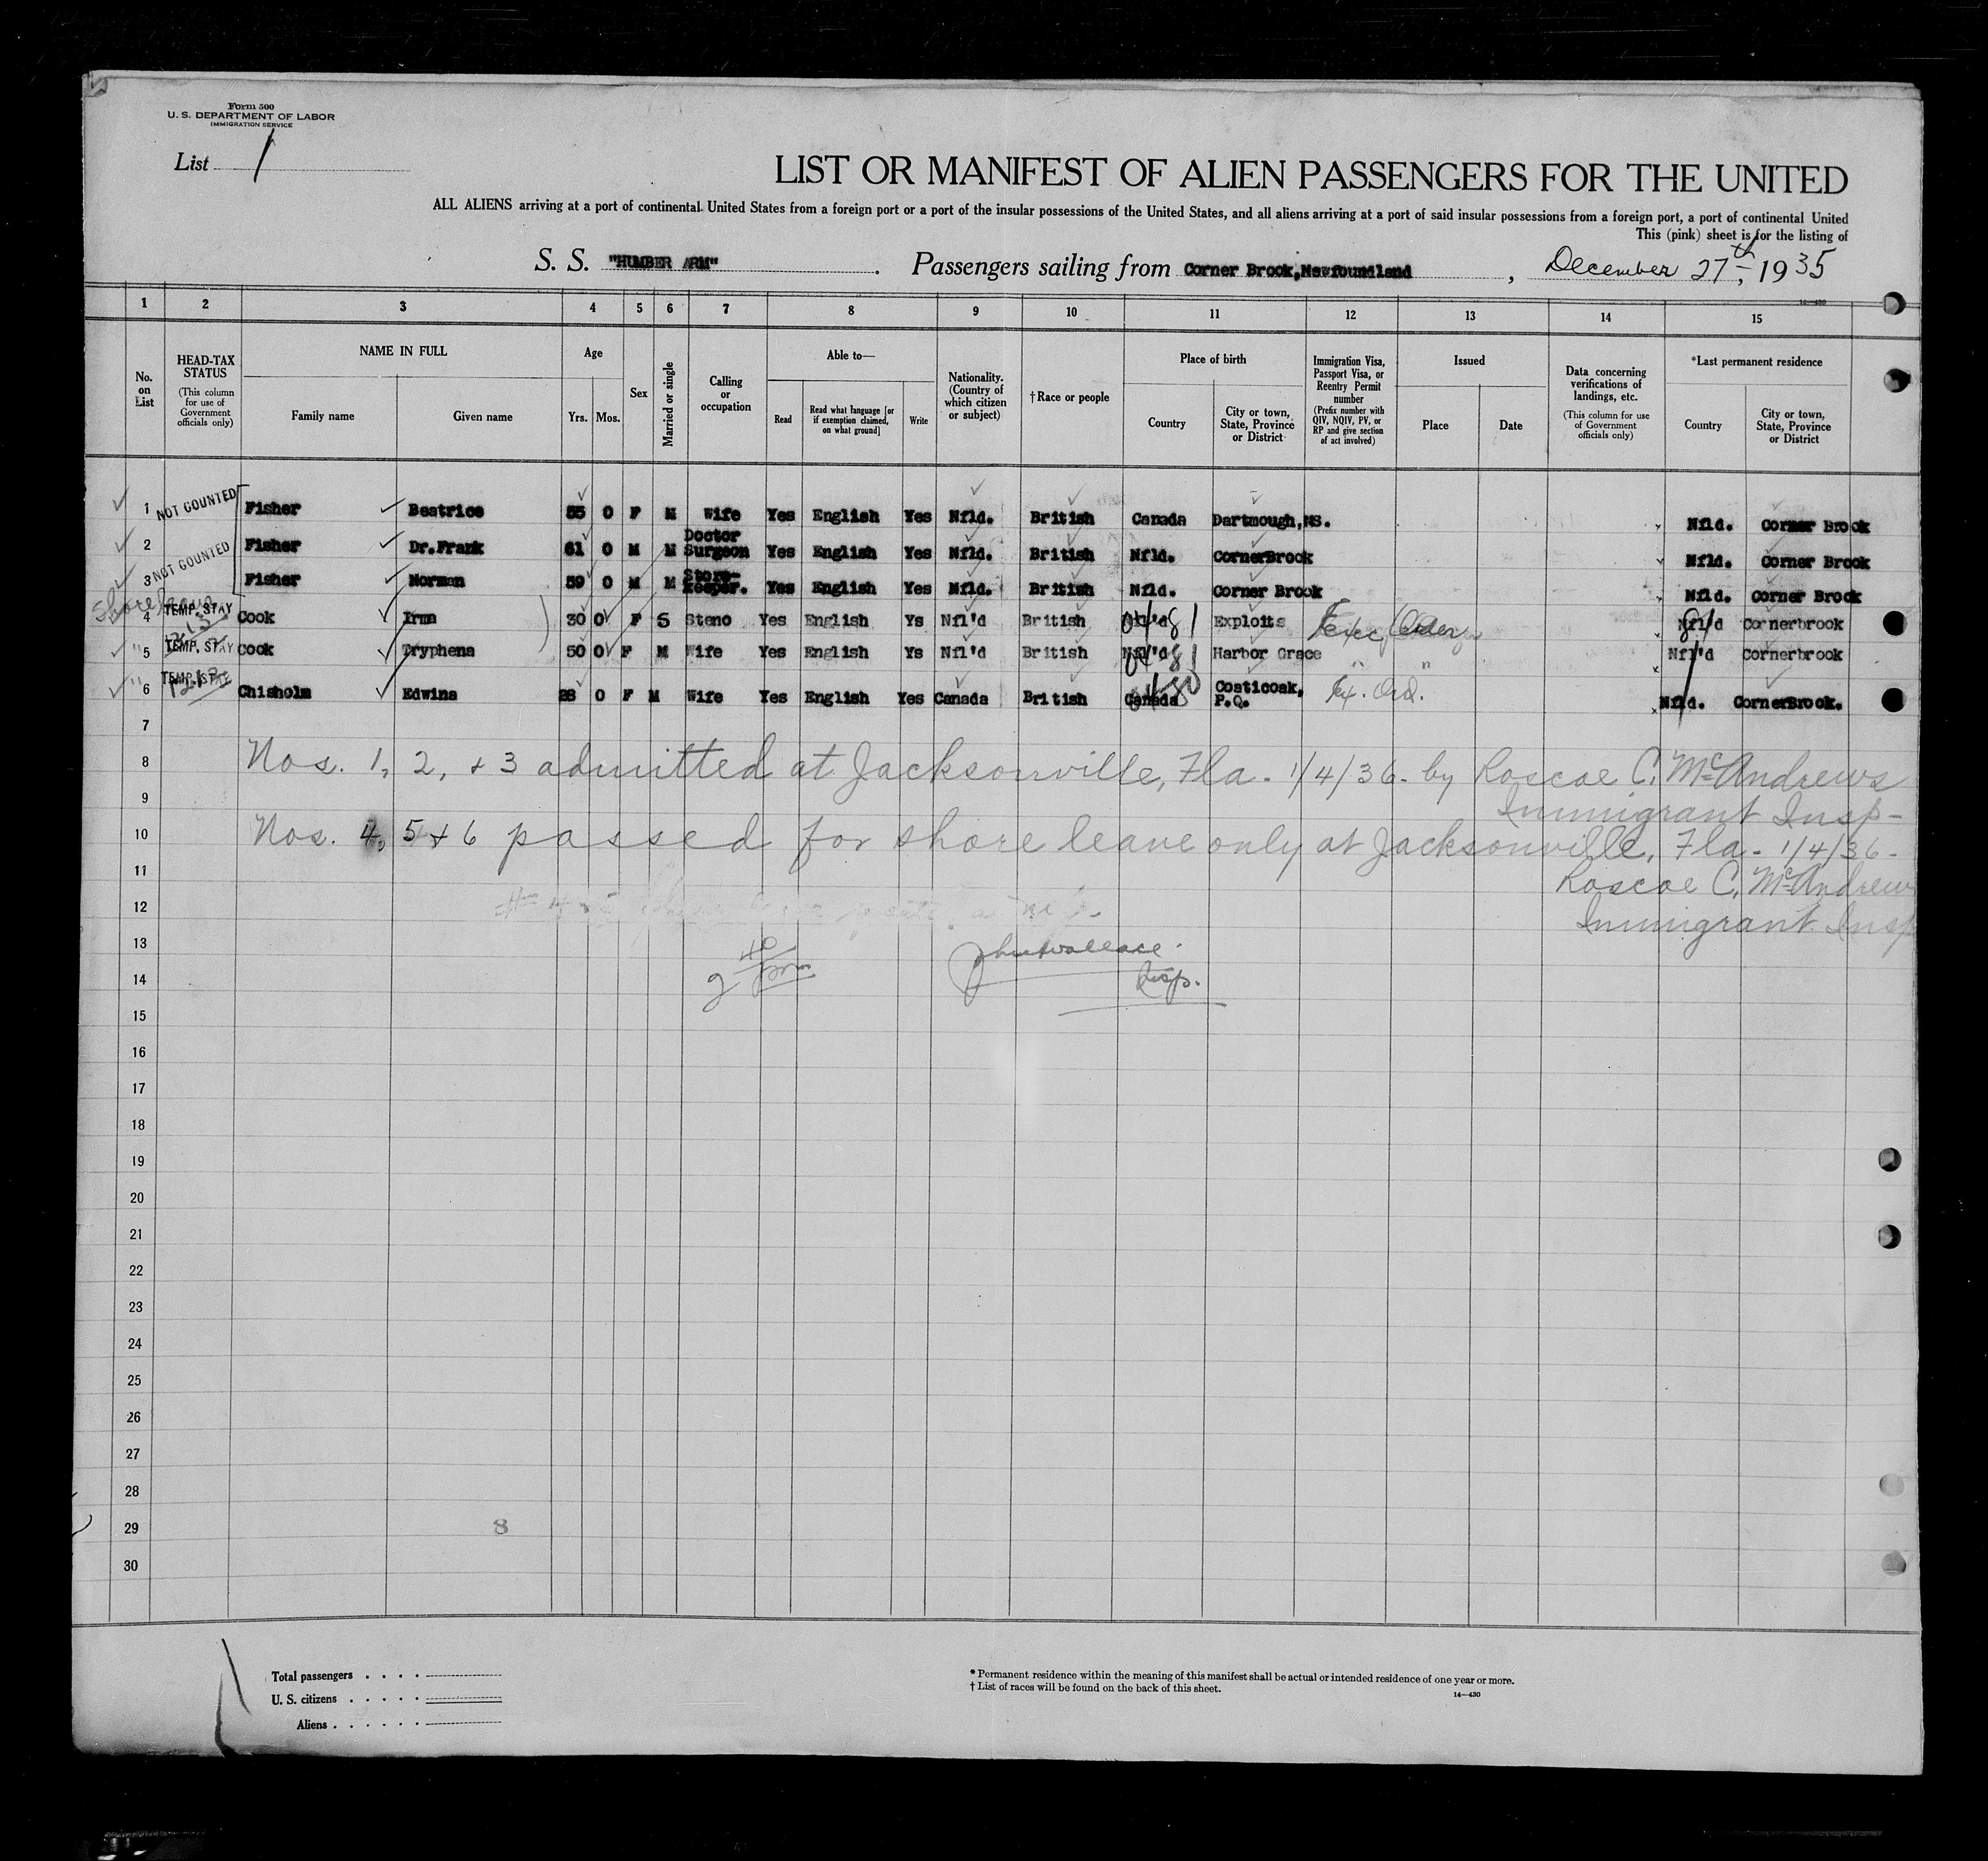 Form 500
U. S. DEPARTMENT OF LABOR
IMMIGRATION SERVICE
List 1
LIST OR MANIFEST OF ALIEN PASSENGERS FOR THE UNITED
ALL ALIENS arriving at a port of continental United States from a foreign port or a port of the insular possessions of the United States, and all aliens arriving at a port of said insular possessions from a foreign port, a port of continental United
This (pink) sheet is for the listing of
S. S. "HUMBER ARM" . Passengers sailing from Corner Brook, Newfoundland , December 27th, 1935
14—430
1 2 3 4 5 6 7 8 9 10 11 12 13 14 15
No. on List
HEAD-TAX STATUS
(This column for use of Government officials only)
NAME IN FULL
Family name
Given name
Age
Yrs. Mos.
Sex
Married or single
Calling or occupation
Able to—
Read
Read what language [or if exemption claimed, on what ground]
Write
Nationality. (Country of which citizen or subject)
†Race or people
Place of birth
Country
City or town, State, Province or District
Immigration Visa, Passport Visa, or Reentry Permit number
(Prefix number with QIV, NQIV, PV, or RP and give section of act involved)
Issued
Place
Date
Data concerning verifications of landings, etc.
(This column for use of Government officials only)
*Last permanent residence
Country
City or town, State, Province or District
1 NOT COUNTED Fisher Beatrice 55 0 F M Wife Yes English Yes Nfld. British Canada Dartmough, NS. Nfld. Corner Brook
2 Fisher Dr.Frank 61 0 M M Doctor Surgeon Yes English Yes Nfld. British Nfld. CornerBrook Nfld. Corner Brook
3 NOT COUNTED Fisher Norman 59 0 M M Store-keeper. Yes English Yes Nfld. British Nfld. Corner Brook Nfld. Corner Brook
4 TEMP. STAY Cook Irma 30 0 F S Steno Yes English Ys Nfl'd British Nfl'd 81 Exploits Nfl'd Cornerbrook
" 5 TEMP. STAY Cook Tryphena 50 0 F M Wife Yes English Ys Nfl'd British Nfl'd 81 Harbor Grace " " Nfl'd Cornerbrook
" 6 TEMP. STAY Chisholm Edwina 28 0 F M Wife Yes English Yes Canada British Canada 80 Coaticoak, P.Q. Ex. Ord. Nfld. CornerBrook.
7
8 Nos. 1, 2, + 3 admitted at Jacksonville, Fla. 1/4/36 - by Roscoe C. McAndrews
9 Immigrant Insp-
10 Nos. 4, 5 + 6 passed for shore leave only at Jacksonville, Fla - 1/4/36 -
11 Roscoe C. McAndrews
12 Immigrant Insp
13 John Wallace.
14 Insp.
15
16
17
18
19
20
21
22
23
24
25
26
27
28
29 8
30
Total passengers . . . .
U. S. citizens . . . . .
Aliens . . . . . .
* Permanent residence within the meaning of this manifest shall be actual or intended residence of one year or more.
† List of races will be found on the back of this sheet.
14—430